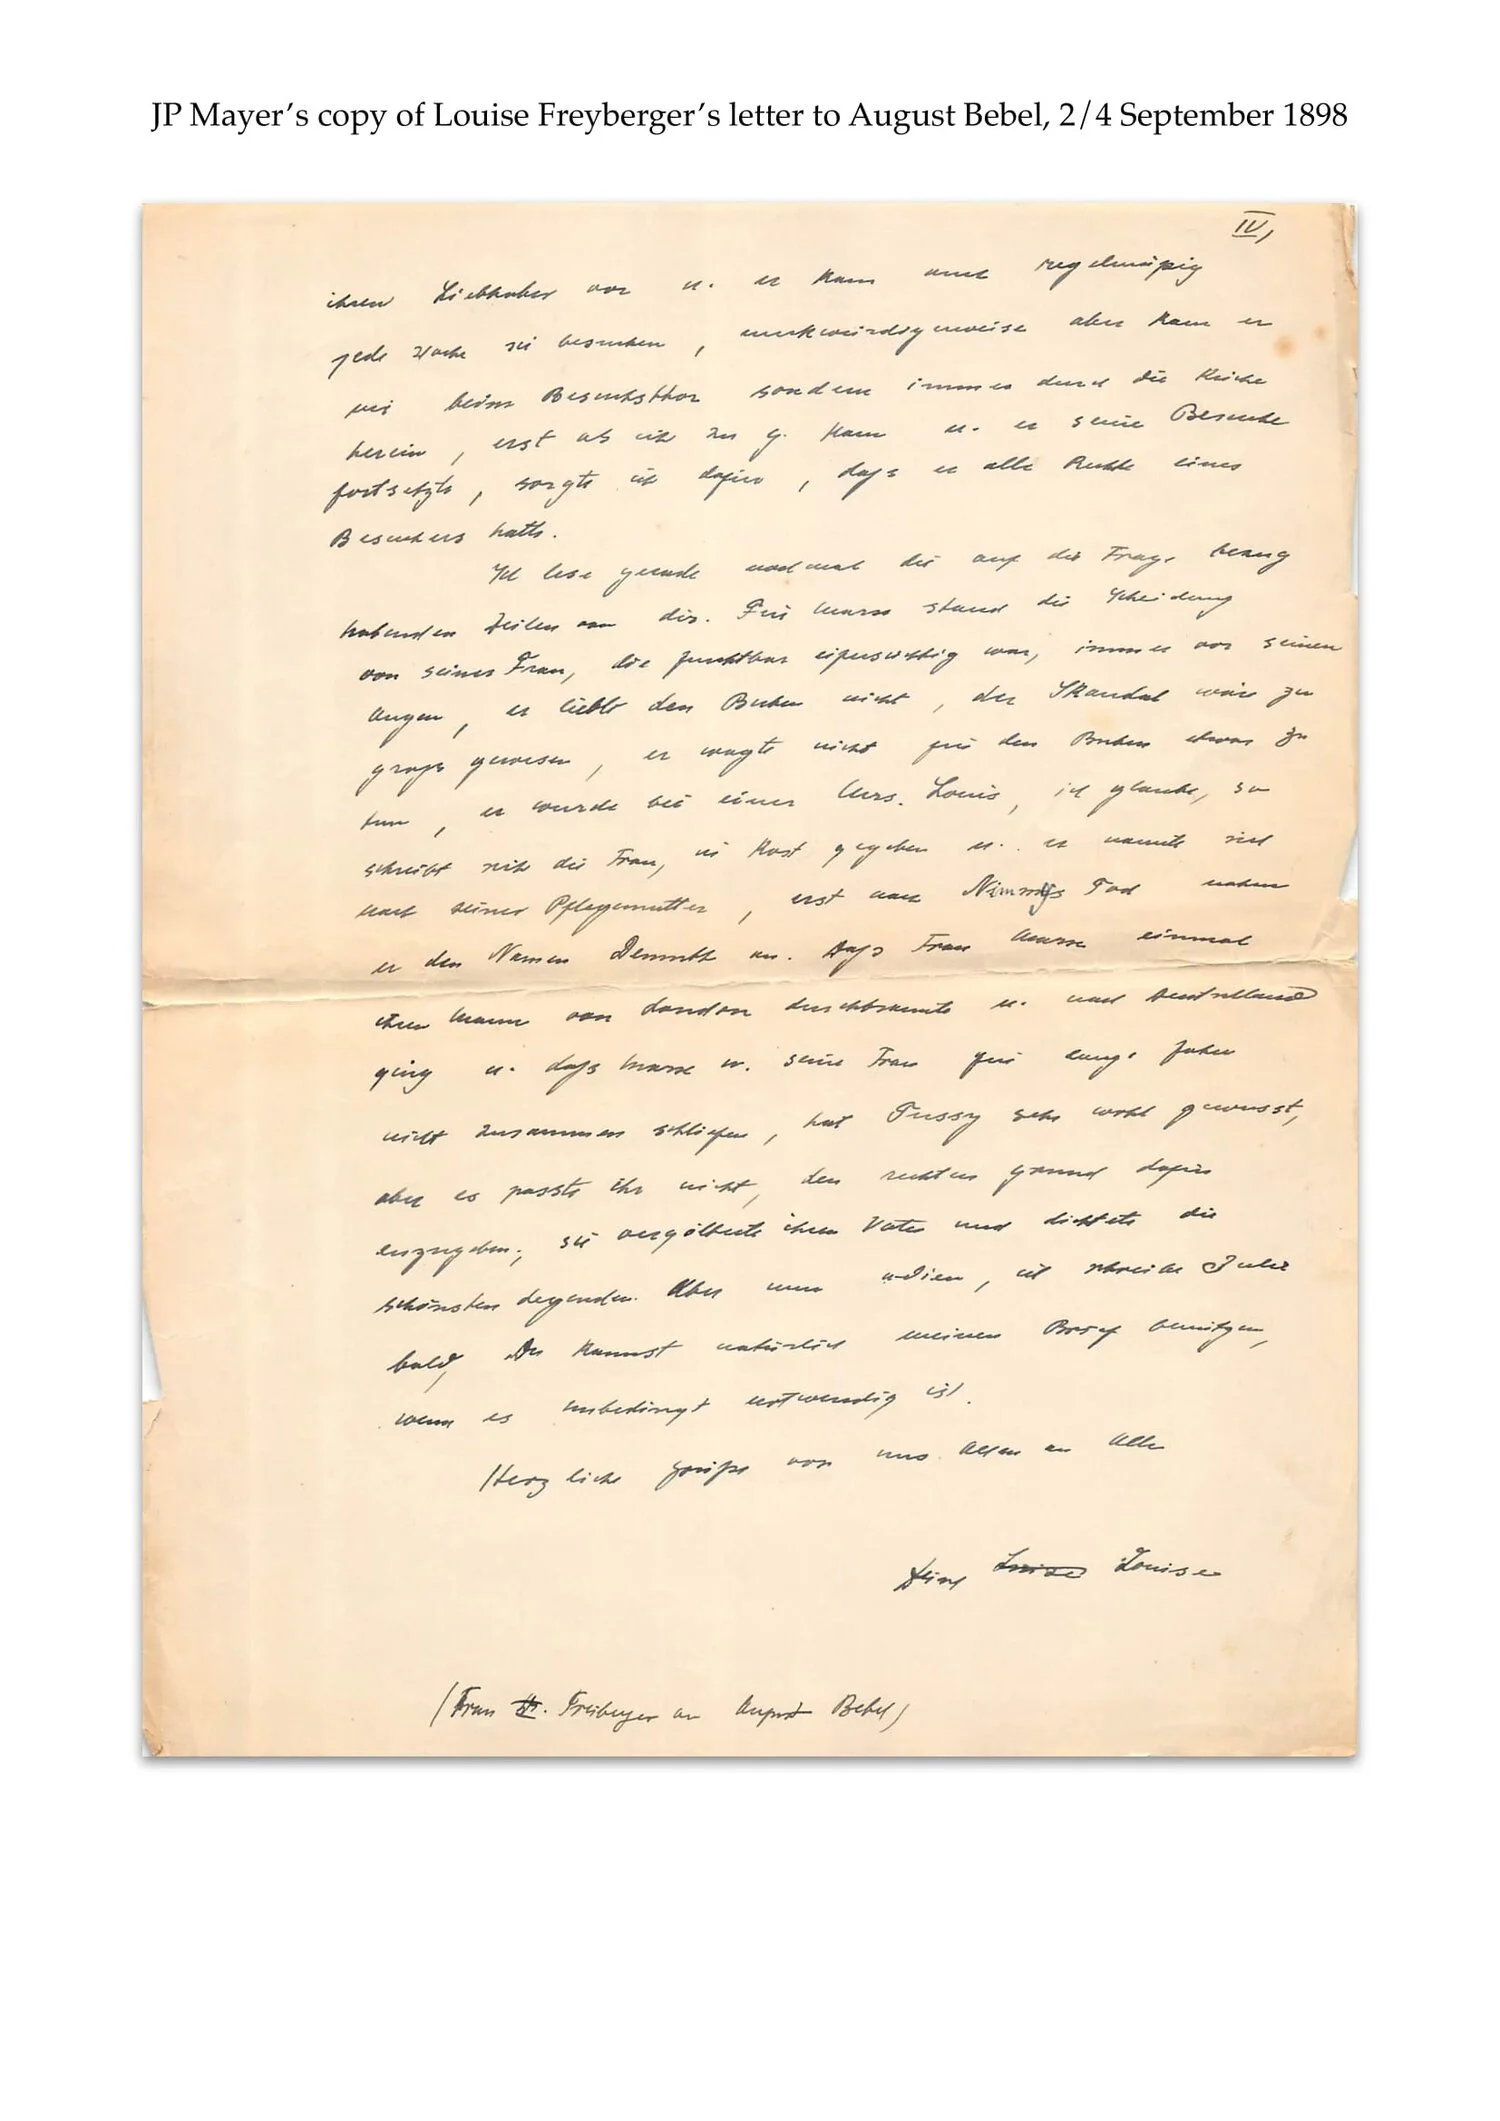 JP Mayer’s copy of Louise Freyberger’s letter to August Bebel, 2/4 September 1898
IV,
ihren Liebhaber vor u. er kam auch regelmäßig
jede Woche sie besuchen, merkwürdigerweise aber kam er
nie beim Besuchsthor sondern immer durch die Küche
herein, erst als ich zu G. kam u. er seine Besuche
fortsetzte, sorgte ich dafür, daß er alle Rechte eines
Besuchers hatte.
Ich lese gerade nochmal die auf die Frage bezug
habenden Zeilen von dir. Für Marx stand die Scheidung
von seiner Frau, die furchtbar eifersüchtig war, immer vor seinen
Augen, er liebte den Buben nicht, der Skandal wäre zu
groß gewesen, er wagte nicht für den Buben etwas zu
tun, er wurde bei einer Mrs. Louis, ich glaube, so
schreibt sich die Frau, in Kost gegeben u. er nannte sich
nach seiner Pflegemutter, erst nach Nimmys Tod nahm
er den Namen Demuth an. Daß Frau Marx einmal
ihrem Manne von London durchbrannte u. nach Deutschland
ging u. daß Marx u. seine Frau für lange Jahre
nicht zusammen schliefen, hat Tussy sehr wohl gewusst,
aber es passte ihr nicht, den rechten Grund dafür
anzugeben; sie vergötterte ihren Vater und dichtete die
schönsten Legenden. Aber nun adieu, ich schreibe Julie
bald, Du kannst natürlich meinen Brief benützen,
wenn es unbedingt notwendig ist.
Herzliche Grüße von uns Allen an Alle
Deine Louise Louise
(Frau Dr. Freiberger an August Bebel)